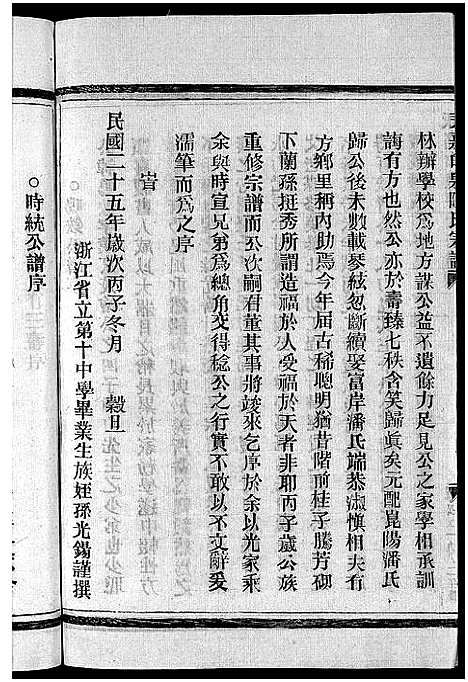 林辦學校為地方謀公益不遺餘力足見公之家學相承訓
誨有方也然公亦於壽臻七秩含笑歸眞矣元配崑陽潘氏
歸公後未數載琴絃忽斷續娶富岸潘氏端恭淑慎相夫有
方鄉里稱內助焉今年屆古稀聰明猶昔階前桂子騰芳砌
下蘭孫挺秀所謂造福於人受福於天者非耶丙子歲公族
重修宗譜而公次嗣君董其事將竣來乞序於余以光家乘
余與時宣兄弟為總角交得稔公之行實不敢以不文辭爰
濡筆而為之序
旹
民國二十五年歲次丙子冬月　穀旦
浙江省立第十中學畢業生族姪孫光錫謹撰
○時統公譜序